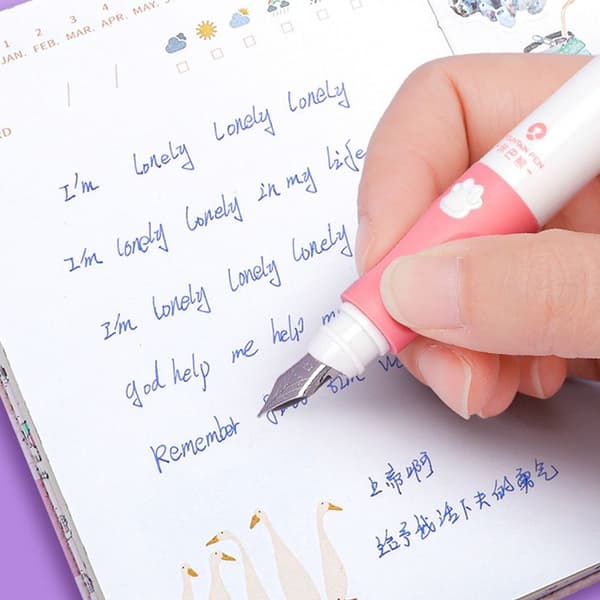 1 2 3 4
JAN. FEB. MAR. APR. MAY.
I'm lonely lonely lonely
I'm lonely lonely in my life
I'm lonely lonely lonely
god help me help
Remember
上帝啊
给予我活下去的勇气
PEN